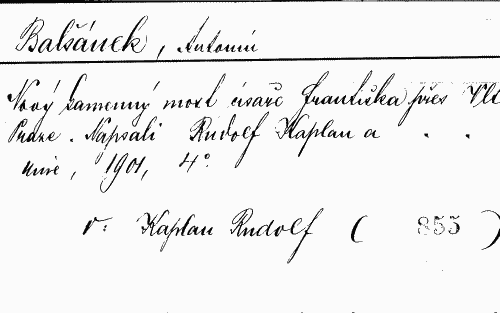 Balšánek, Antonín
Nový kamenný most císaře Františka přes Vlt
Praze. Napsali Rudolf Kaplan a . .
Unie, 1901, 4°.
v: Kaplan Rudolf ( 855 )